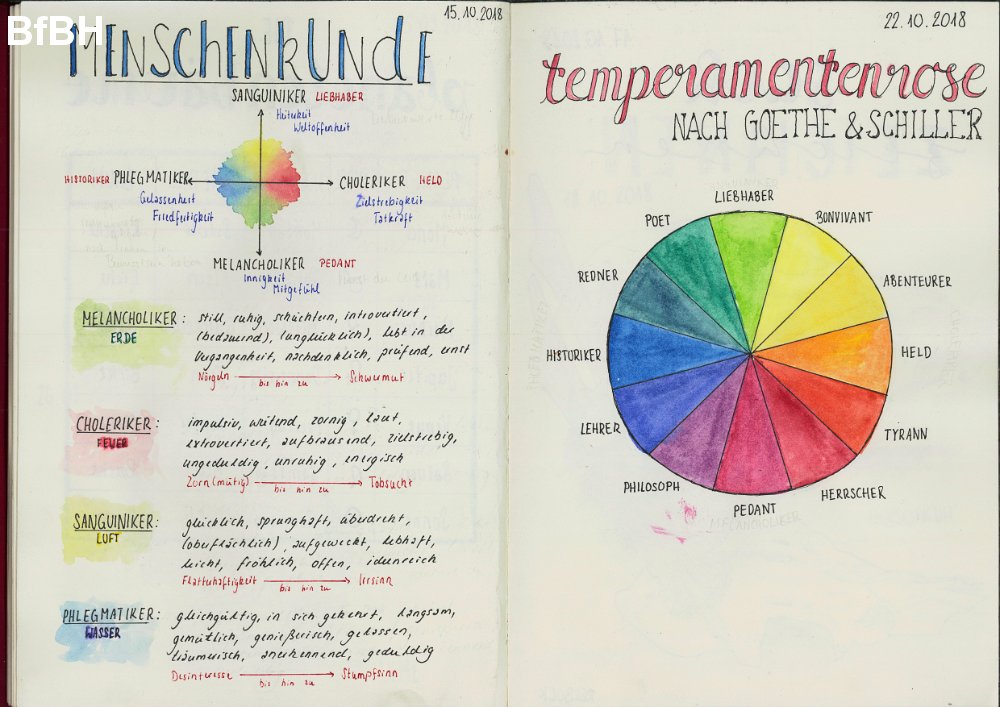 BfBH
15.10.2018
MENSCHENKUNDE
SANGUINIKER LIEBHABER
Heiterkeit
Weltoffenheit
HISTORIKER PHLEGMATIKER
CHOLERIKER HELD
Gelassenheit
Friedfertigkeit
Zielstrebigkeit
Tatkraft
MELANCHOLIKER PEDANT
Innigkeit
Mitgefühl
MELANCHOLIKER: still, ruhig, schüchtern, introvertiert,
ERDE (bedauernd), (unglücklich), lebt in der
Vergangenheit, nachdenklich, prüfend, ernst
Nörgeln bis hin zu Schwermut
CHOLERIKER: impulsiv, wütend, zornig, laut,
FEUER extrovertiert, aufbrausend, zielstrebig,
ungeduldig, unruhig, energisch
Zorn (mütig) bis hin zu Tobsucht
SANGUINIKER: glücklich, sprunghaft, überdreht,
LUFT (oberflächlich), aufgeweckt, lebhaft,
leicht, fröhlich, offen, ideenreich
Flatterhaftigkeit bis hin zu Irrsinn
PHLEGMATIKER: gleichgültig, in sich gekehrt, langsam,
WASSER gemütlich, genießerisch, gelassen,
träumerisch, anerkennend, geduldig
Desinteresse bis hin zu Stumpfsinn
22.10.2018
temperamentenrose
NACH GOETHE & SCHILLER
LIEBHABER
BONVIVANT
ABENTEURER
HELD
TYRANN
HERRSCHER
PEDANT
PHILOSOPH
LEHRER
HISTORIKER
REDNER
POET
MELANCHOLIKER